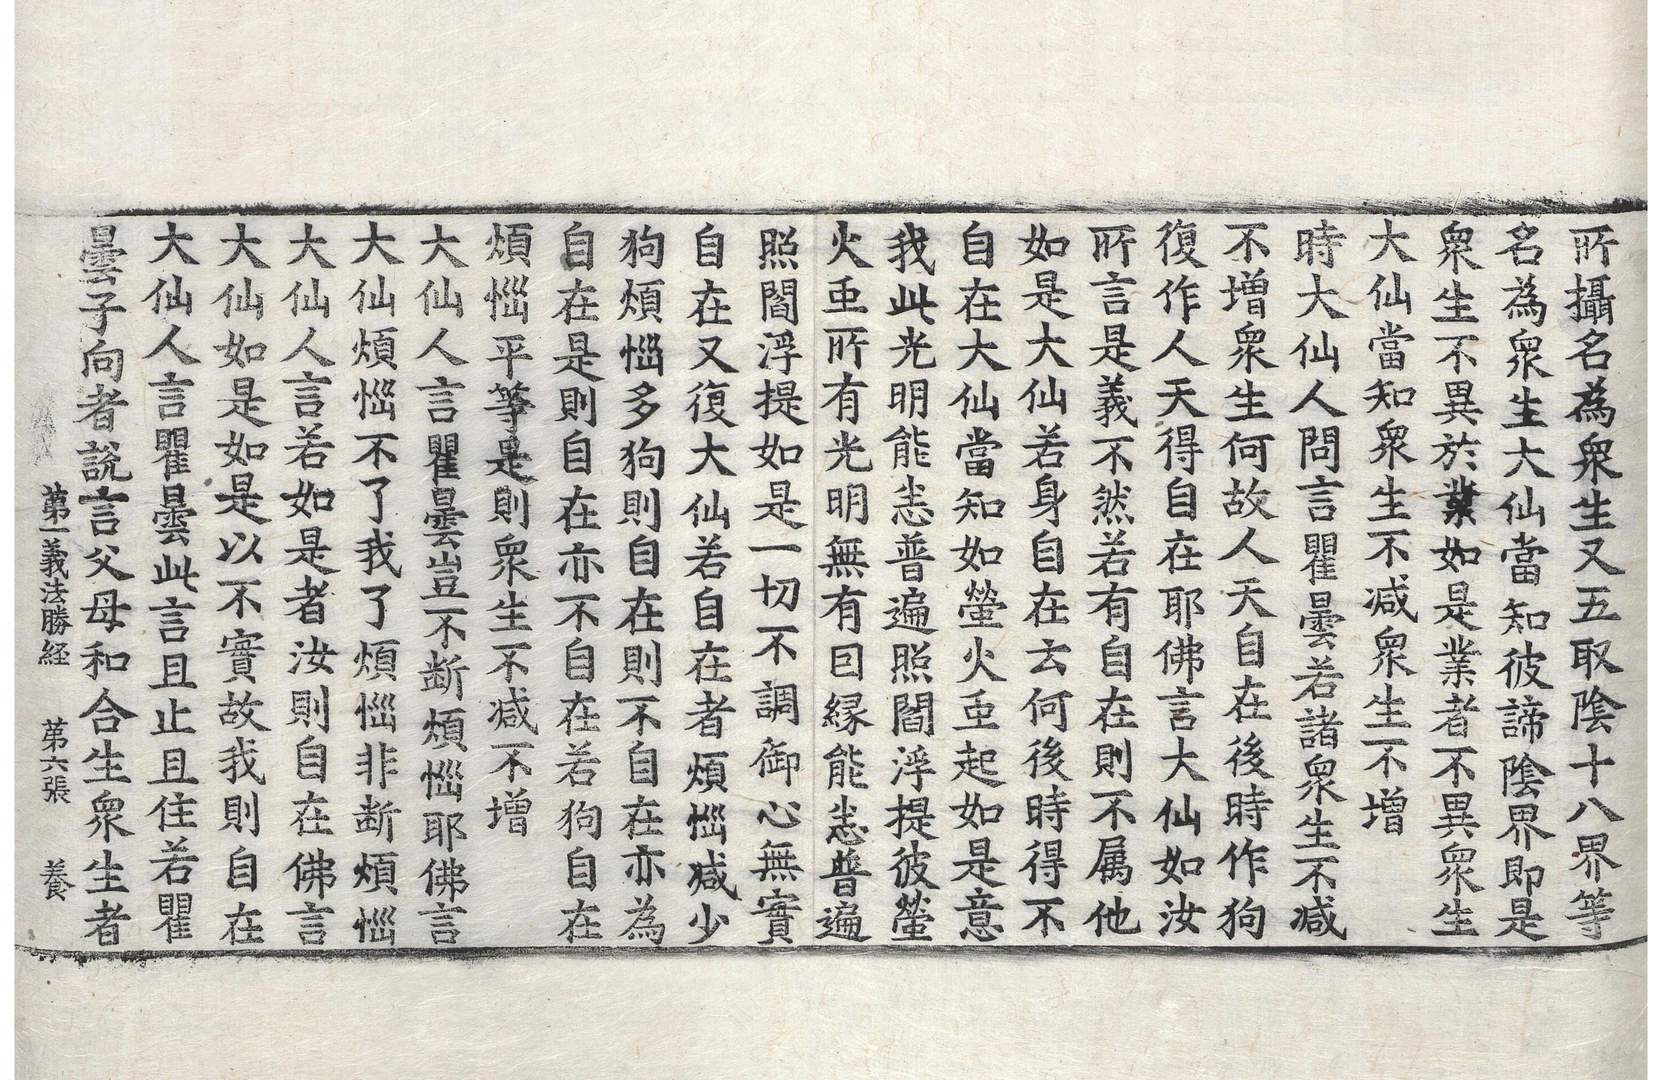 所攝名為衆生又五取陰十八界等
名為衆生大仙當知彼諦陰界即是
衆生不異於業如是業者不異衆生
大仙當知衆生不減衆生不增
時大仙人問言瞿曇若諸衆生不減
不增衆生何故人天自在後時作狗
復作人天得自在耶佛言大仙如汝
所言是義不然若有自在則不属他
如是大仙若身自在云何後時得不
自在大仙當知如螢火虫起如是意
我此光明能悉普遍照閻浮提彼螢
火虫所有光明無有因縁能悉普遍
照閻浮提如是一切不調御心無實
自在又復大仙若自在者煩惱減少
狗煩惱多狗則自在則不自在亦為
自在是則自在亦不自在若狗自在
煩惱平等是則衆生不減不增
大仙人言瞿曇豈不断煩惱耶佛言
大仙煩惱不了我了煩惱非断煩惱
大仙人言若如是者汝則自在佛言
大仙如是如是以不實故我則自在
大仙人言瞿曇此言且止且住若瞿
曇子向者説言父母和合生衆生者
第一義法勝経 第六張 養